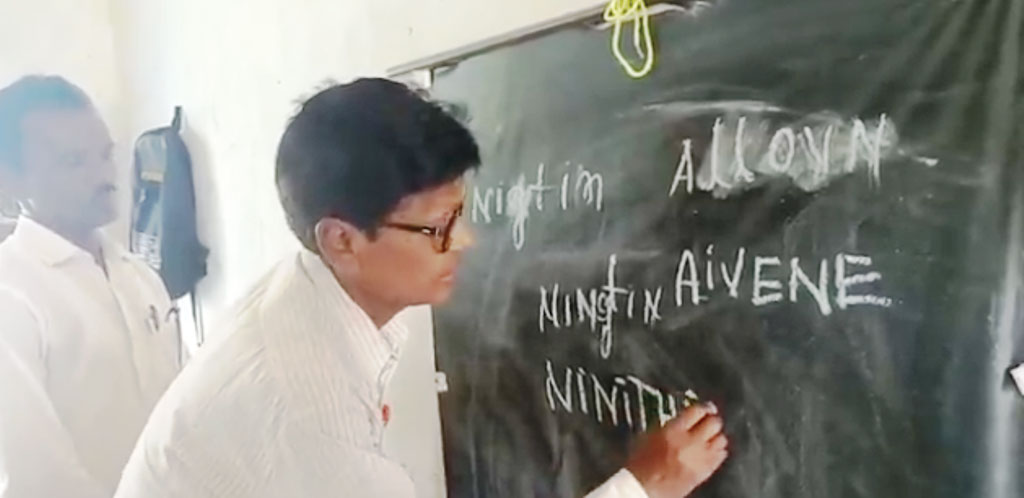 Nigtin AllOVN
NINgtiN AiVENE
NiNiTH